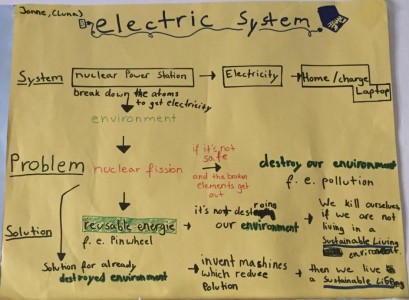 Jonne, (Luna)
electric System
System
nuclear Power Station
Electricity
Home/charge
Laptop
break down the atoms
to get electricity
environment
Problem
nuclear fission
if it's not
safe
and the broken
elements get
out
destroy our environment
f. e. pollution
Solution
reusable energie
f. e. Pinwheel
it's not destroing
our environment
We kill ourselves
if we are not
living in a
Sustainable Living
Solution for already
destroyed environment
invent machines
which reduce
Polution
then we live
a Sustainable